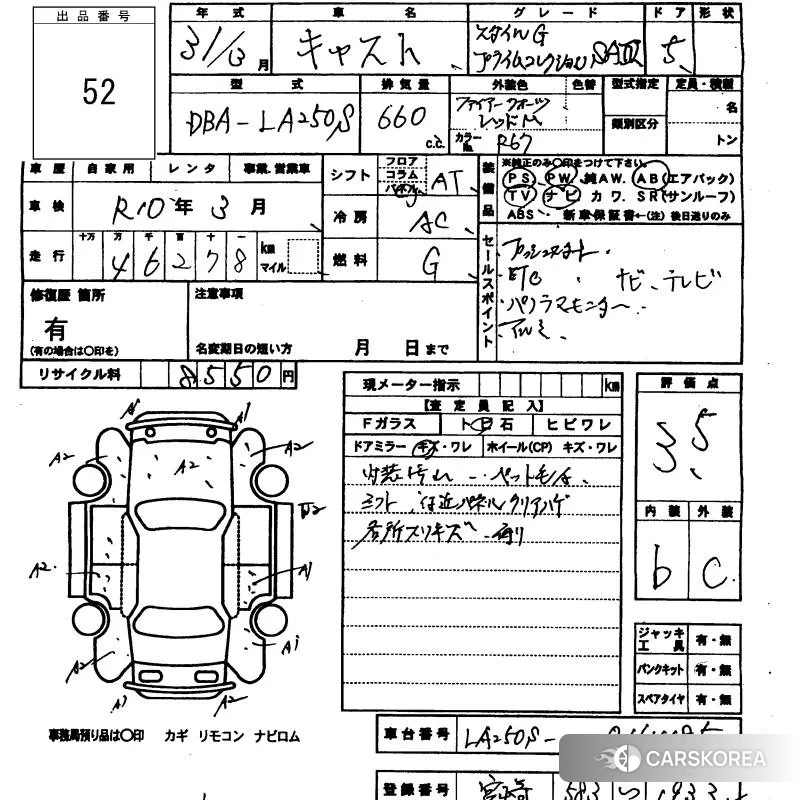 出品番号
52
年式 車名 グレード ドア 形状
31/3月 キャスト スタイルG プライムコレクション SAⅢ 5
型式 排気量 外装色 色替 型式指定 定員・積載
DBA-LA250S 660 c.c. ファイアークォーツ レッドM 類別区分 名
カラーNo. R67 トン
車歴 自家用 レンタ 事業、営業車
シフト フロア コラム パネル AT
装備品 ※純正のみ〇印をつけて下さい。
PS. PW. 純AW. AB(エアバック)
TV ナビ カワ. SR(サンルーフ)
ABS 新車保証書←(注) 後日送りのみ
車検 R10年3月
冷房 AC
走行 十万 万 千 百 十 一 km マイル
46278
燃料 G
セールスポイント プッシュスタート.
ETC . ナビ、テレビ
パノラマモニター.
修復歴 箇所
有
(有の場合は〇印を)
注意事項
名変期日の短い方 月 日まで
リサイクル料 8550円
現メーター指示 km
【査定員記入】
Fガラス トビ石 ヒビワレ
ドアミラー キズ・ワレ ホイール(CP) キズ・ワレ
内装汚れ ペット毛
シフト 付近パネルクリアハゲ
各所スリキズ有り
評価点
3.5
内装 外装
b C
A1
A2 A2 A2
W2
A2 A1
A1
A2
A1 A2
ジャッキ 工具 有・無
パンクキット 有・無
スペアタイヤ 有・無
事務局預り品は〇印 カギ リモコン ナビロム
車台番号 LA250S-
登録番号 宮崎 583
CARSKOREA